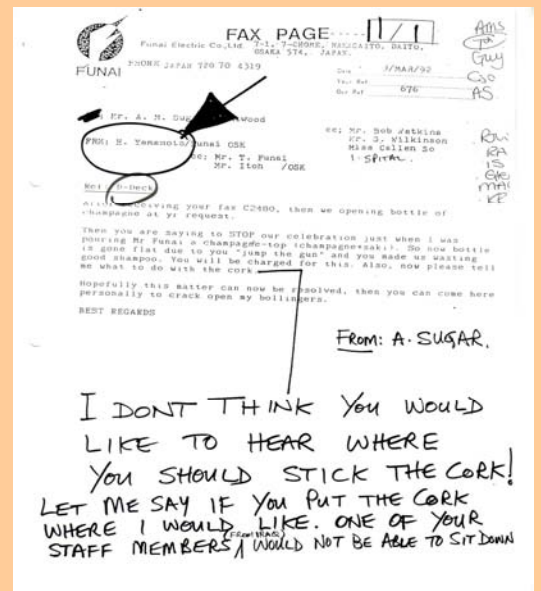 FAX PAGE 1/1
Funai Electric Co.,Ltd. 7-1, 7-CHOME, NAKAGAITO, DAITO,
OSAKA 574, JAPAN.
FUNAI
PHONE JAPAN 720 70 4319
Date 3/MAR/92
Your Ref
Our Ref 676
AMS
TO
Guy
AS
Mr. A. M.
FRM: H. Yamamoto/Funai OSK
cc; Mr. Bob Watkins
Mr. J. Wilkinson
Miss Callen So
1. SPITAL.
cc; Mr. T. Funai
Mr. Itoh /OSK
Re: D-Deck
After receiving your fax C2480, then we opening bottle of
champagne at yr request.
Then you are saying to STOP our celebration just when I was
pouring Mr Funai a champagne-top (champagne+saki). So now bottle
is gone flat due to you "jump the gun" and you made us wasting
good shampoo. You will be charged for this. Also, now please tell
me what to do with the cork.
Hopefully this matter can now be resolved, then you can come here
personally to crack open my bollingers.
BEST REGARDS
FROM: A. SUGAR.
I DONT THINK YOU WOULD
LIKE TO HEAR WHERE
YOU SHOULD STICK THE CORK!
LET ME SAY IF YOU PUT THE CORK
WHERE I WOULD LIKE. ONE OF YOUR
STAFF MEMBERS (FROM IRAQ) WOULD NOT BE ABLE TO SIT DOWN